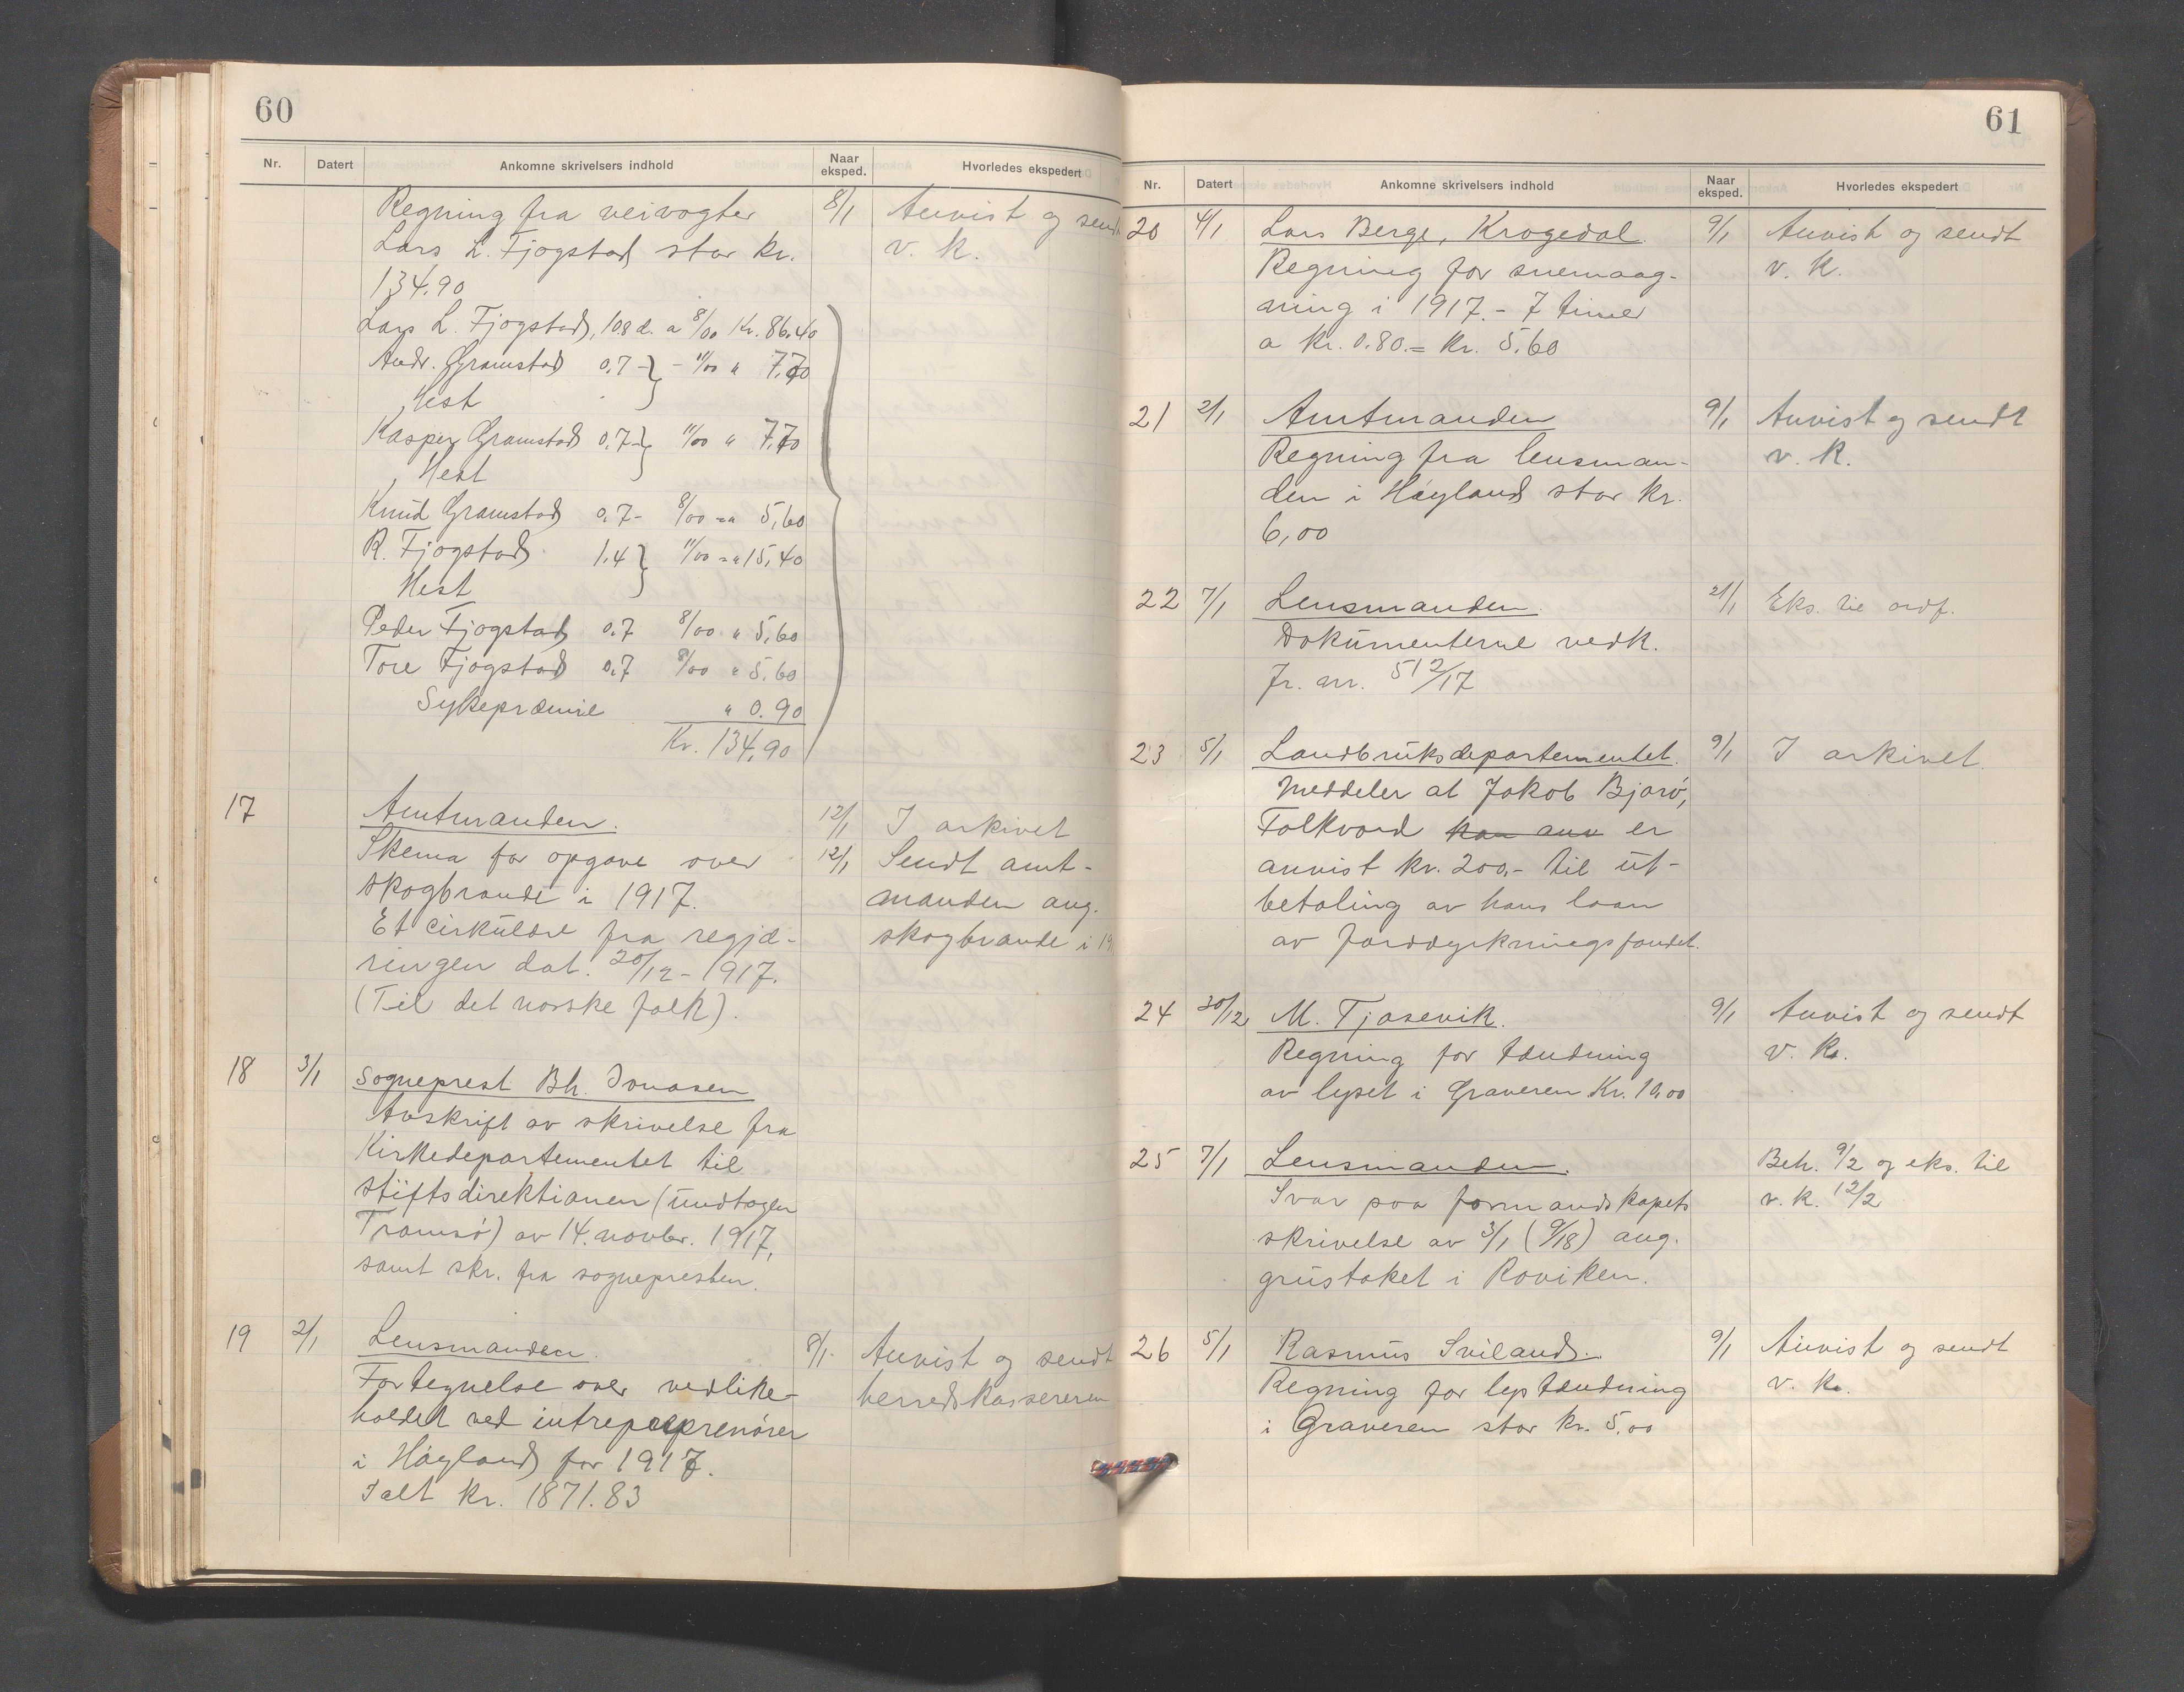 60
Nr. Datert Ankomne skrivelsers indhold Naar eksped. Hvorledes ekspedert
Regning fra veivogter 8/1 Anvist og sendt
Lars L. Fjogstad stor kr. v. k.
134.90
Lars L. Fjogstad, 108 d. a 8/00 Kr. 86.40
Andr. Gramstad 0.7 - } - 11/00 " 7.70
Hest
Kasper Gramstad 0.7 - } 11/00 " 7.70
Hest
Knud Gramstad 0.7 - 8/00 = " 5,60
R. Fjogstad 1.4 } 11/00 = " 15,40
Hest
Peder Fjogstad 0.7 8/00 " 5,60
Tore Fjogstad 0.7 8/00 " 5.60
Sykepræmie " 0.90
Kr. 134,90
17 Amtmanden. 12/1 I arkivet
Skema for opgave over 12/1 Sendt amt-
skogbrande i 1917. manden ang.
Et cirkulære fra regjæ- skogbrande i 19
ringen dat. 20/12 - 1917.
(Til det norske folk).
18 3/1 Sogneprest Bh. Jonasen
Avskrift av skrivelse fra
Kirkedepartementet til
stiftsdirektionen (undtagen
Tromsö) av 14. novbr. 1917,
samt skr. fra sognepresten.
19 2/1 Lensmanden. 8/1 Anvist og sendt
Fortegnelse over vedlike- herredskassereren
holdet ved intreprenører
i Høyland for 1917.
Ialt kr. 1871.83
61
Nr. Datert Ankomne skrivelsers indhold Naar eksped. Hvorledes ekspedert
20 4/1 Lars Berge, Krogedal. 9/1 Anvist og sendt
Regning for snemaag- v. k.
ning i 1917. - 7 timer
a Kr. 0.80. = Kr. 5.60
21 2/1 Amtmanden 9/1 Anvist og sendt
Regning fra lensman- v. k.
den i Høyland stor kr.
6,00
22 7/1 Lensmanden. 21/1 Eks. til ordf.
Dokumenterne vedk.
Jr. nr. 512/17
23 5/1 Landbruksdepartementet. 9/1 I arkivet.
Meddeler at Jakob Bjorö,
Folkvord kan anv er
anvist kr. 200,- til ut-
betaling av hans laan
av Jorddyrkningsfondet.
24 30/12 M. Tjosevik. 9/1 Anvist og sendt
Regning for tændning v. k.
av lyset i Graveren Kr. 10,00
25 7/1 Lensmanden. Beh. 9/2 og eks. til
Svar paa formandskapets v. k. 12/2
skrivelse av 3/1 (9/18) ang.
grustaket i Roviken.
26 5/1 Rasmus Sviland. 9/1 Anvist og sendt
Regning for lystændning v. k.
i Graveren stor kr. 5,00